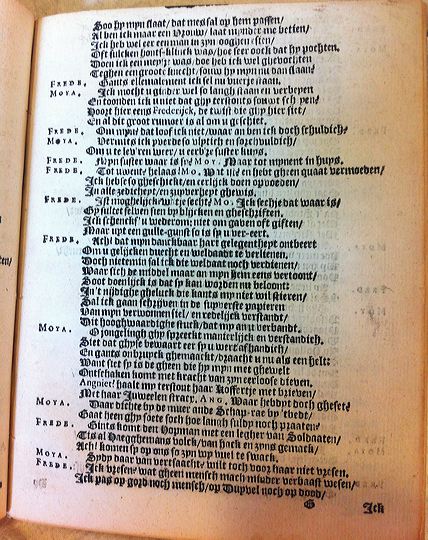 Soo hy myn slaat/ dat mes sal op hem passen/
Al ben ick maar een Vrouw/ laat minder me betien/
Ick heb wel eer een man in zyn ooghen sien/
Oft sulcken honts-klinck was/ hoe seer oock dat hy pochten.
Doen ick een meysje was/ doe heb ick wel ghevochten
Teghen een groote knecht/ souw hy myn nu dan slaan?
FREDE. Gants ellemalement ick sel nu bierje staan.
MOYA. Ick mocht u ginder wel so langh staan en verbeyen
En toonden ick u niet dat ghy ter slonts souwt scheyen/
Hoort hier eens Frederijck, de twist die ghy hier siet/
En al dit groot rumoer is al om u geschiet.
FREDE. Om myn? dat loof ick niet/ waar an ben ick doch schuldich?
MOYA. Vermits ick yverde so vlytich en sorchvuldich/
Om u te leveren weer/ u eerbre suster kuys.
FREDE. Myn suster waar is se? MOY. Maar tot mynent in huys.
FREDE. Tot uwent? helaas! MO. Wat wilje en hebt gheen quaat vermoeden/
Ick heb se so gheschickt/ en eerlijck doen opvoeden/
In alle zedicheyt/ en zuyverheyt ghewis.
FREDE. Ist moghelijck wat je secht? MO. Ick sech je dat waar is/
Ghy sult et selver sien by blijcken en gheschriften.
Ick schencks' u wederom; niet om gaven oft giften/
Maar upt een gulle-gunst so is sy u ver-eert.
FREDE. Ach! dat myn danckbaar hart gelegentheyt ontbeert
Om u gelijcken deucht en weldaadt te verlienen.
Doch niet te min sal ick die weldaat noch verdienen/
Waar sich de middel maar an myn hem eens vertoont/
Soot doenlijck is dat sy kan worden nu beloont:
In 't nijdighe gheluck die kants my niet wil stieren/
Sal ick gaan schrijven in de suyverste papieren
Van myn verwonnen siel/ en redelijck verstandt/
Dit hooghwaardighe stuck/ dat myn an u verbandt.
MOYA. O jongelingh ghy spreeckt manterlijck en verstandich.
Siet dat ghyse bewaart eer sy u wert afhandich/
En gants onbruyck ghemaackt/ draacht u nu als een helt:
Want siet sy is de gheen die hy myn met ghewelt
Ontschaken komt met kracht van zyn eerloose dieven.
Angnier! haalt my ter slont haar Koffertje met brieven/
Met haar Juweelen strax. ANG. Waar hebdyt doch gheset?
MOYA. Daar dichte by de muer ande Schap-rae by 't bedt/
Gaat henen ghy soete soch hoe langh suldy noch praaten?
FREDE. Gints komt den Hopman met een legher van Soldaaten/
Tis al Haegghemans volck/ van hack en zyns gemack/
Ach! komen sy op ons so zyn wy vuel te swack.
MOYA. Sydy daar van vertsaacht? wilt toch voor haar niet vresen.
FREDE. Ick vresen? wat gheen mensch mach minder verbaast wesen/
Ick pas op godt noch mensch/ op Duyvel noch op doodt/
G Ick